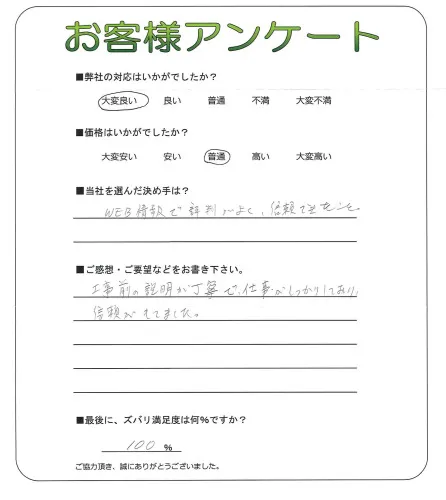 お客様アンケート
■弊社の対応はいかがでしたか？
大変良い 良い 普通 不満 大変不満
■価格はいかがでしたか？
大変安い 安い 普通 高い 大変高い
■当社を選んだ決め手は？
WEB情報で評判がよく、信頼できたこと。
■ご感想・ご要望などをお書き下さい。
工事前の説明が丁寧で、仕事がしっかりしており、
信頼がもてました。
■最後に、ズバリ満足度は何%ですか？
100 %
ご協力頂き、誠にありがとうございました。